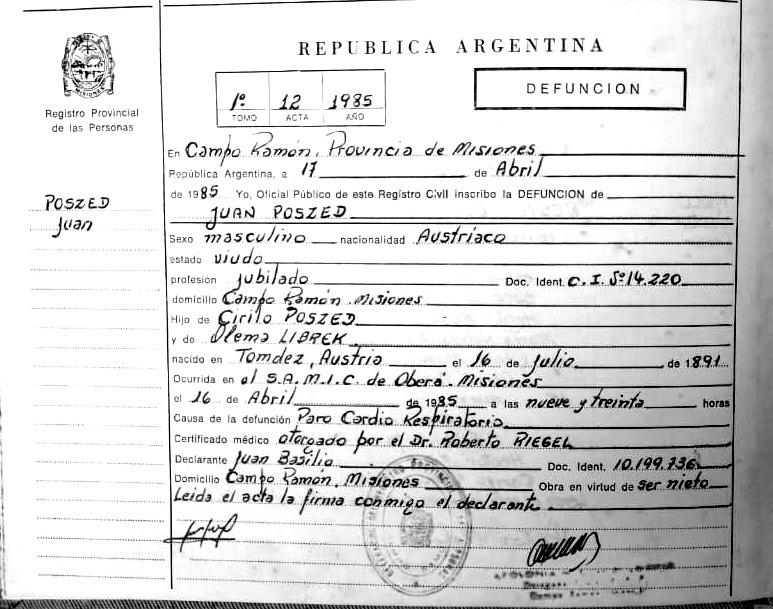 MISIONES
Registro Provincial
de las Personas
POSZED
Juan
REPUBLICA ARGENTINA
DEFUNCION
1º 12 1985
TOMO ACTA AÑO
En Campo Ramón, Provincia de Misiones
República Argentina, a 17 de Abril
de 1985 Yo, Oficial Público de este Registro Civil inscribo la DEFUNCION de
JUAN POSZED
Sexo masculino nacionalidad Austríaco
estado viudo
profesión jubilado Doc. Ident. C. I. Nº 14.220
domicilio Campo Ramón. Misiones
Hijo de Cirilo POSZED
y de Olema LIBREK
nacido en Tomdez, Austria el 16 de julio de 1891
Ocurrida en el S.A.M.I.C. de Oberá. Misiones
el 16 de Abril de 1985 a las nueve y treinta horas
Causa de la defunción Paro Cardio Respiratorio
Certificado médico otorgado por el Dr. Roberto RIEGEL
Declarante Juan Basilio Doc. Ident. 10.199.736
Domicilio Campo Ramón. Misiones Obra en virtud de ser nieto
Leída el acta la firma conmigo el declarante.